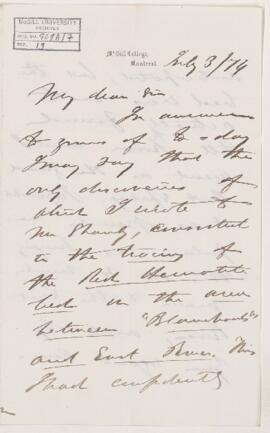 McGILL UNIVERSITY
ARCHIVES
ACC. NO. 909A17
REF. 19
McGill College,
Montreal.
July 3/74
My dear Sir
In answer
to yours of to day
I may say that the
only discoveries of
which I wrote to
Mr consisted
in the tracing of
the Red Hematite
bed in the area
between "Blanchards"
and East River. This
I had confidently